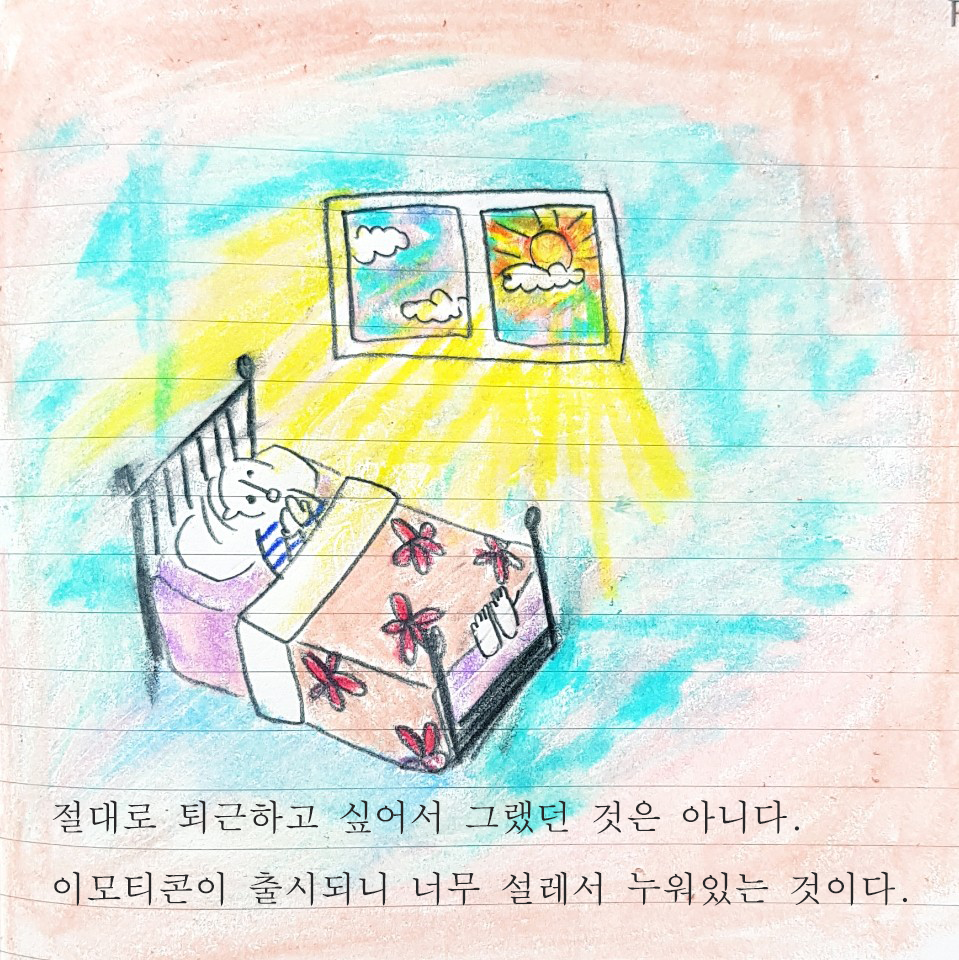 절대로 퇴근하고 싶어서 그랬던 것은 아니다.
이모티콘이 출시되니 너무 설레서 누워있는 것이다.